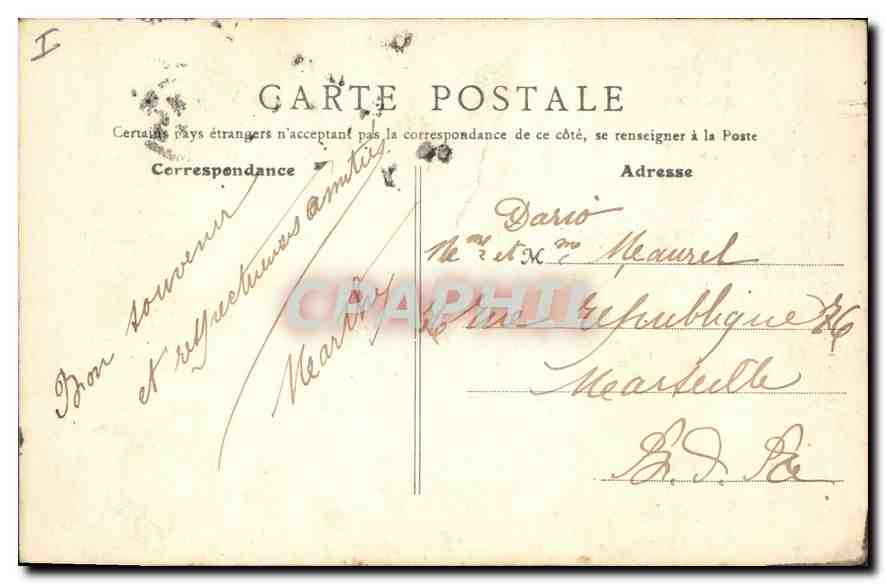 I
CARTE POSTALE
Certains pays étrangers n'acceptant pas la correspondance de ce côté, se renseigner à la Poste
Correspondance
Adresse
Bon souvenir
et respectueuses amitiés
Dario
et M Maurel
76 rue République 76
Marseille
B. d. R
CPAPHIL